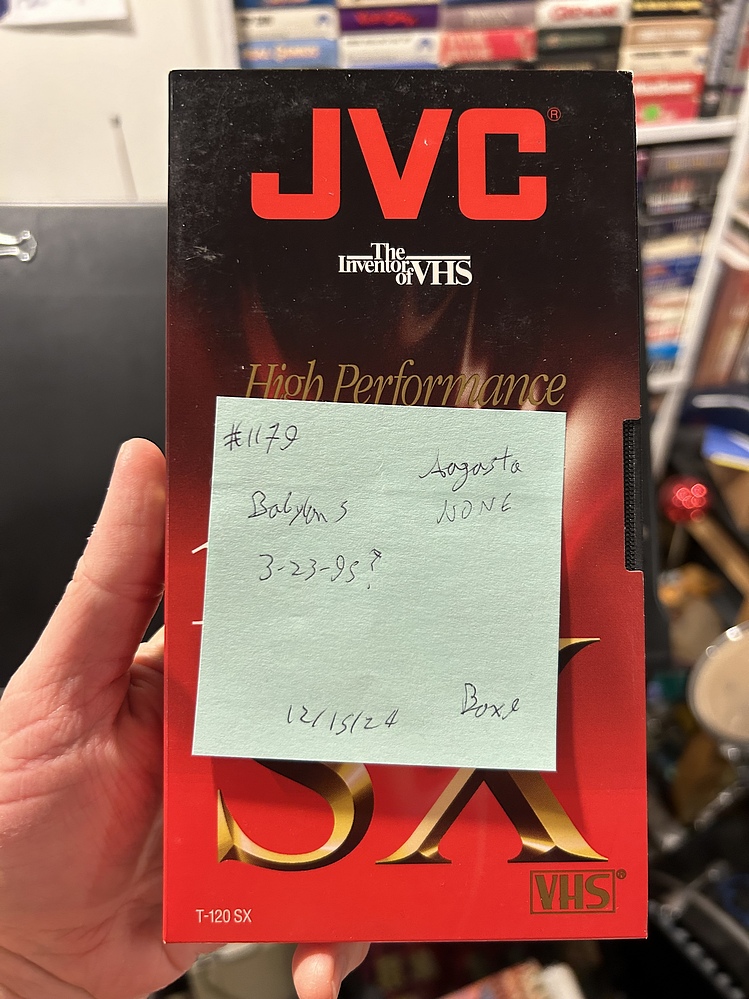 JVC®
The
Inventor
of VHS
High Performance
#1179
Augusta
Babylon 5
NONE
3-23-95?
12/15/24
SX
VHS®
T-120 SX